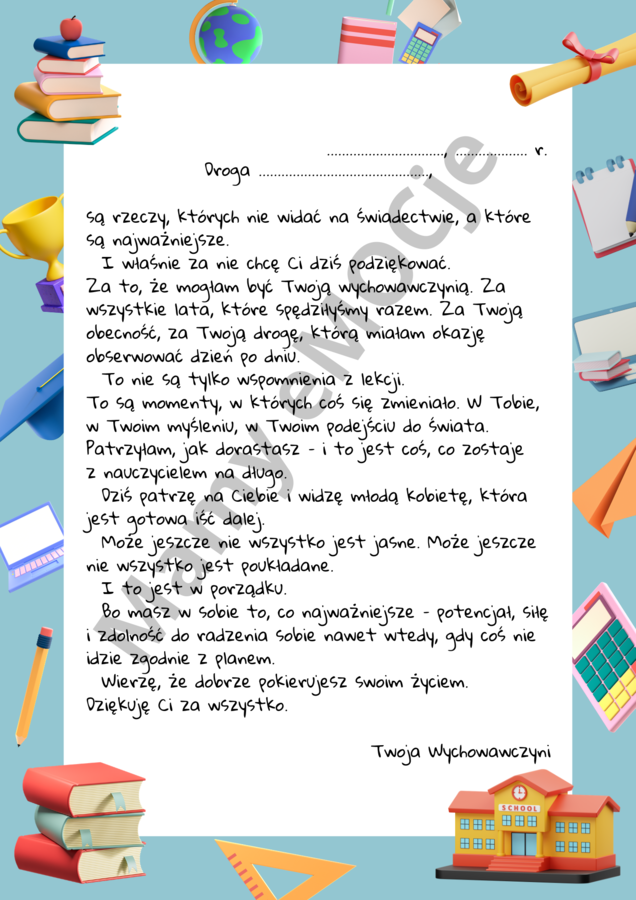 ......................................, ....................... r.
Droga .......................................................,
są rzeczy, których nie widać na świadectwie, a które
są najważniejsze.
I właśnie za nie chcę Ci dziś podziękować.
Za to, że mogłam być Twoją wychowawczynią. Za
wszystkie lata, które spędziłyśmy razem. Za Twoją
obecność, za Twoją drogę, którą miałam okazję
obserwować dzień po dniu.
To nie są tylko wspomnienia z lekcji.
To są momenty, w których coś się zmieniało. W Tobie,
w Twoim myśleniu, w Twoim podejściu do świata.
Patrzyłam, jak dorastasz - i to jest coś, co zostaje
z nauczycielem na długo.
Dziś patrzę na Ciebie i widzę młodą kobietę, która
jest gotową iść dalej.
Może jeszcze nie wszystko jest jasne. Może jeszcze
nie wszystko jest poukładane.
I to jest w porządku.
Bo masz w sobie to, co najważniejsze - potencjał, siłę
i zdolność do radzenia sobie nawet wtedy, gdy coś nie
idzie zgodnie z planem.
Wierzę, że dobrze pokierujesz swoim życiem.
Dziękuję Ci za wszystko.
Twoja Wychowawczyni
Mamy eMocje
SCHOOL